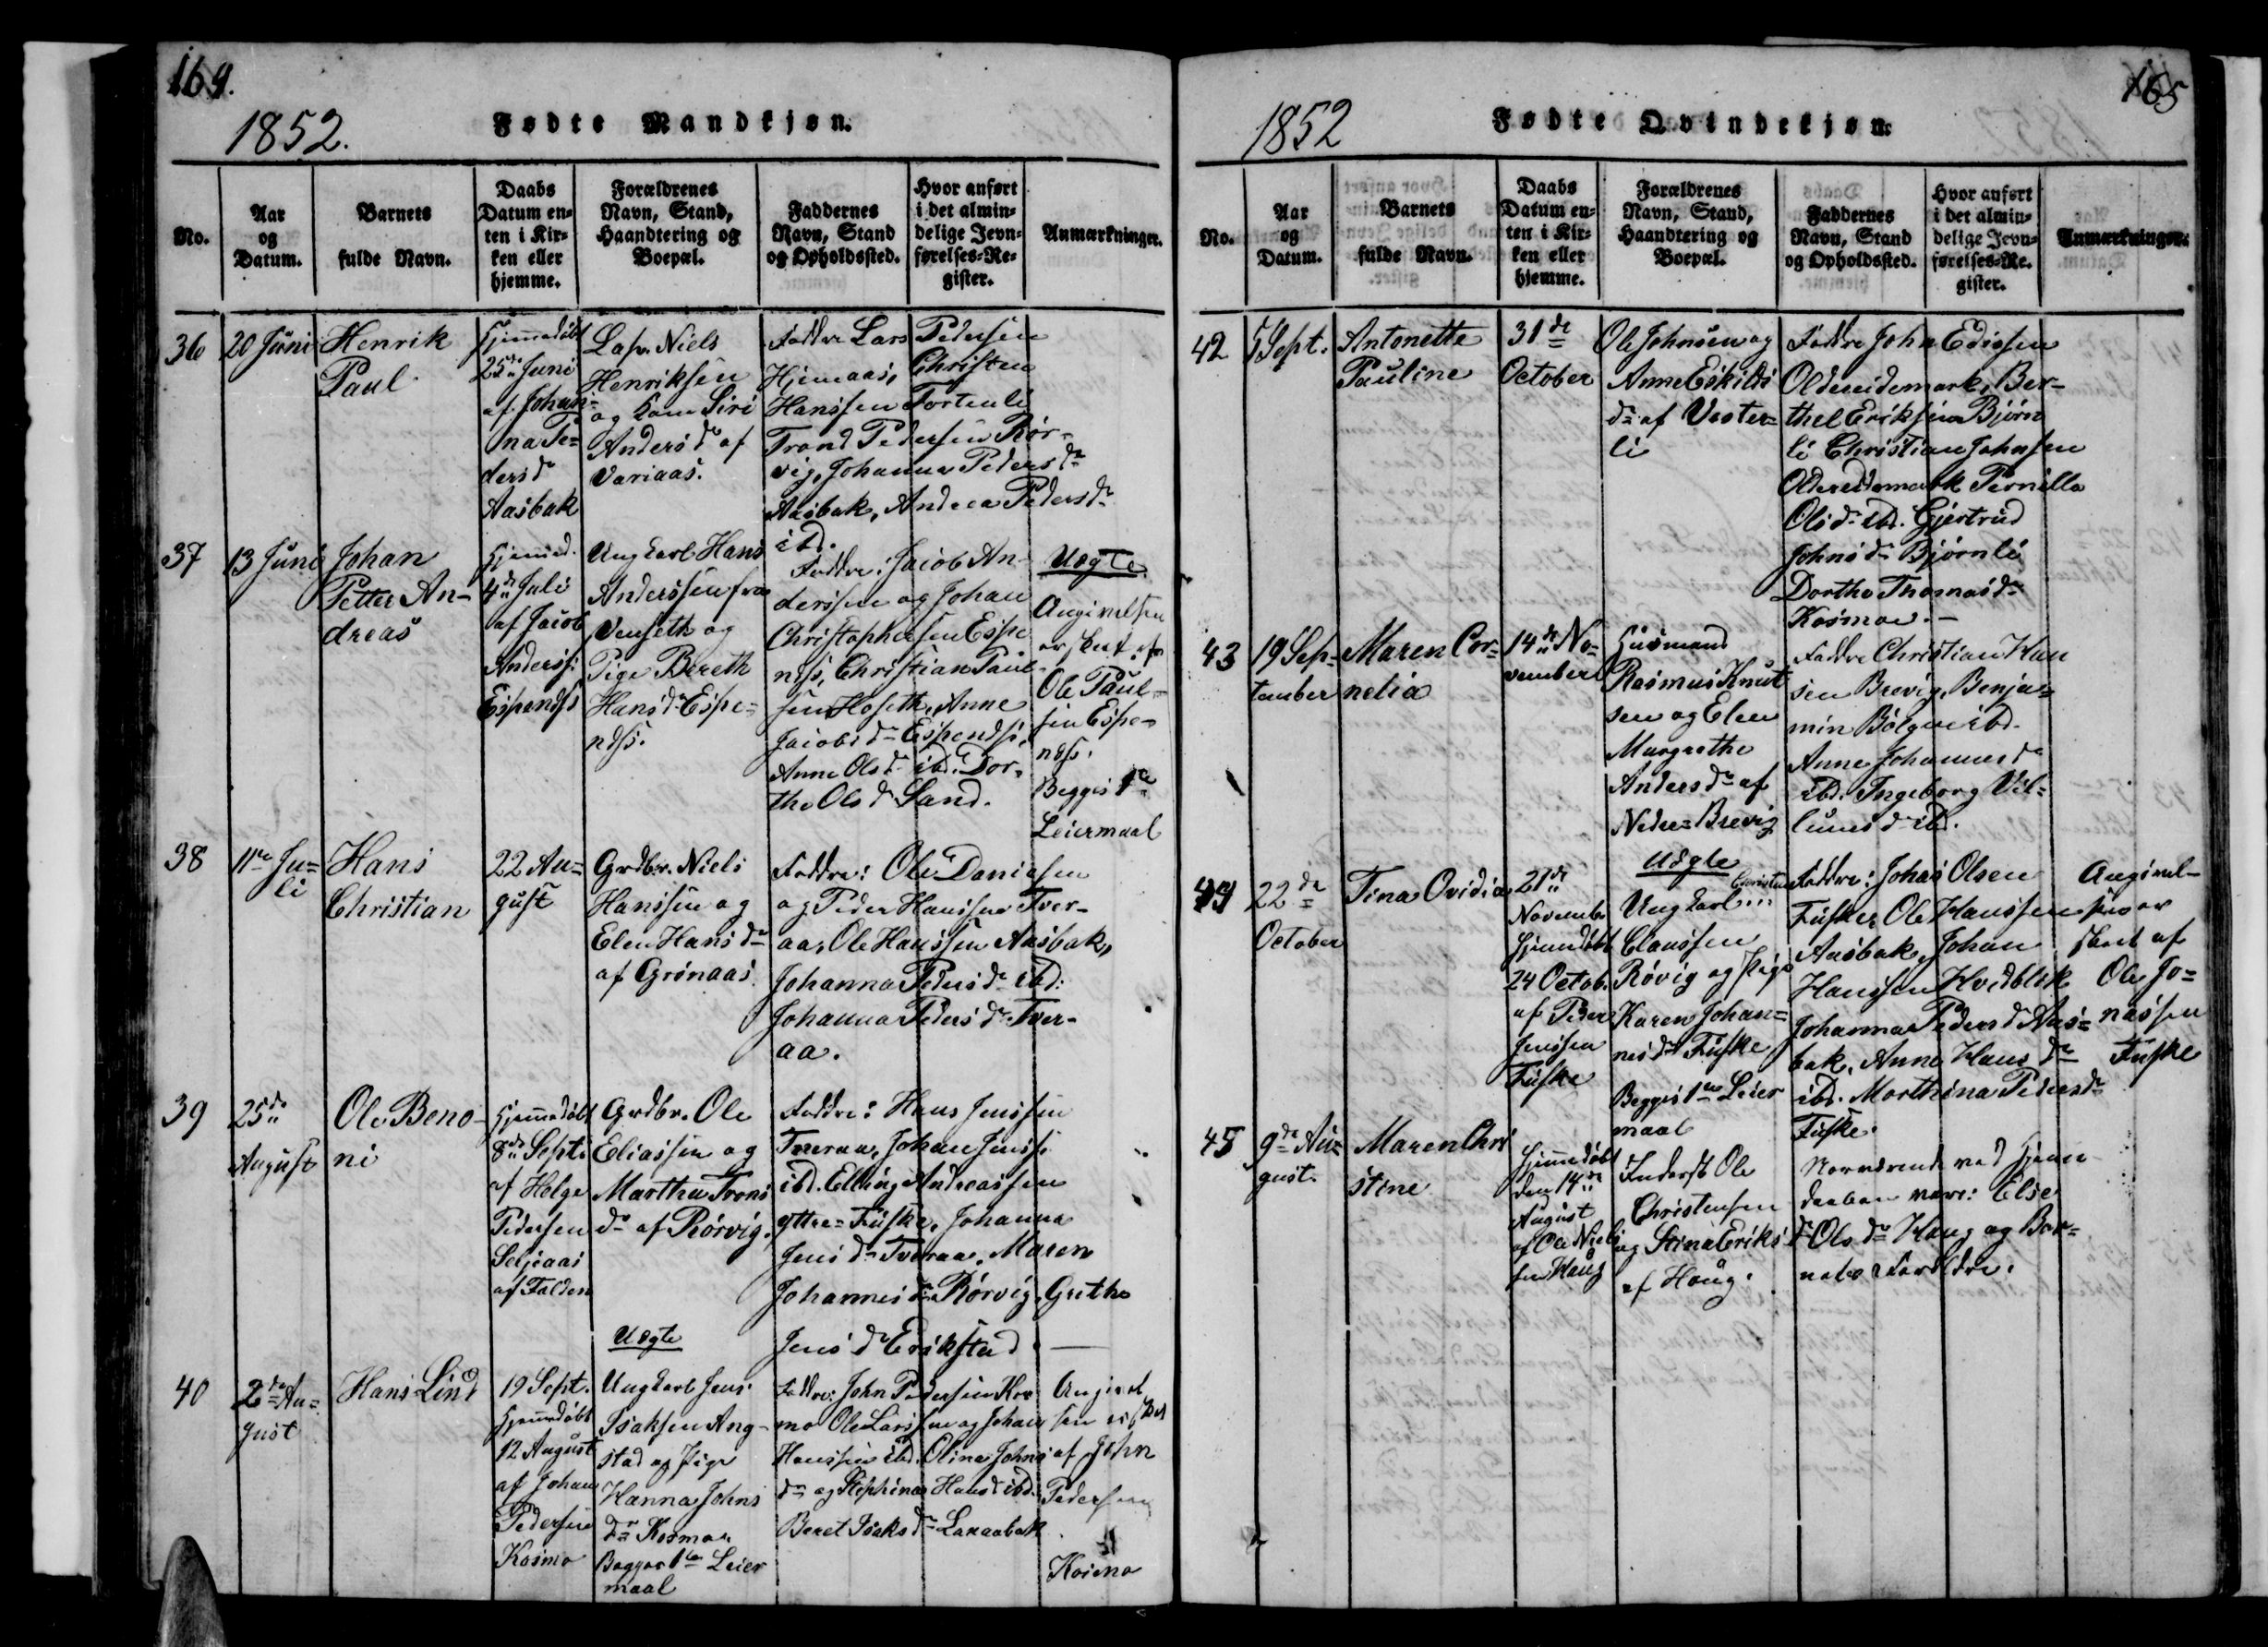 164.
1852.
Fødte Mandkjøn.
No.
Aar
og
Datum.
Barnets
fulde Navn.
Daabs
Datum en-
ten i Kir-
ken eller
hjemme.
Forældrenes
Navn, Stand,
Haandtering og
Boepæl.
Faddernes
Navn, Stand
og Opholdssted.
Hvor anført
i det almin-
delige Jevn-
førelses-Re-
gister.
Anmærkninger.
36
20 Juni
Henrik
Paul
Hjemedöbt
25de Juni
af Johan-
na Pe-
dersdr
Aasbak
Lap. Niels
Henriksen
og Kone Siri
Andersdr af
Variaas.
Faddre Lars Pedersen
Hjemaas, Christen
Hanssen Tortenli
Trond Pedersen Rör-
vig, Johanna Pedersdr
Aasbak, Andrea Pedersdr
ibd.
37
13 Juni
Johan
Petter An-
dreas
Hjemed.
4de Juli
af Jacob
Anderss:
Espendss
Ungkarl Hans
Anderssen fra
Venseth og
Pige Bereth
Hansdr Espe-
ndss.
Faddre: Jacob An-
derssen og Johan
Christophersen Espe
ndss, Christian Paul-
sen Hoseth, Anne
Jacobsdr Espendss,
Anne Olsdr ibd. Dor-
the Olsdr Sand.
Uægte
Angivelsen
er skeet af
Ole Paul-
sen Espe-
ndss.
Begges 1ste
Leiermaal
38
11te Ju-
li
Hans
Christian
22 Au-
gust
Grdbr. Niels
Hanssen og
Elen Hansdr
af Grönaas.
Faddre: Ole Danielsen
og Peder Hanssen Tver-
aa, Ole Hanssen Aasbak,
Johanna Pedersdr ibd:
Johanna Pedersdr Tver-
aa.
39
25de
August
Ole Beno-
ni
Hjemedöbt
8de Septr
af Helge
Pedersen
Seljeaas
af Folden
Grdbr. Ole
Eliassen og
Martha Trons
dr af Rörvig.
Faddre: Hans Jenssen
Tveraa, Johan Jenss:
ibd. Elling Andreassen
yttre-Füske, Johanna
Jensdr Tveraa, Maren
Johannesdr Rörvig, Grethe
Jensdr Erikstad.
40
2de Au-
gust
Hans Lind
19 Sept.
Hjemedöbt
12 August
af Johan
Pedersen
Kosmo
Uægte
Ungkarl Jens
Isaksen Ang-
stad og Pige
Hanna Johns
dr Kosmo.
Begges 1ste Leier
maal
Faddre: John Pedersen Kos
mo Ole Larssen og Johan
Hanssen ibd. Olina Johns
dr og Stephina Hansd ibd.
Beret Isaksdr
Angivel
sen er skeet
af John
Pedersen
Kosmo
165
1852
Fødte Qvindekjøn.
No.
Aar
og
Datum.
Barnets
fulde Navn.
Daabs
Datum en-
ten i Kir-
ken eller
hjemme.
Forældrenes
Navn, Stand,
Haandtering og
Boepæl.
Faddernes
Navn, Stand
og Opholdssted.
Hvor anført
i det almin-
delige Jevn-
førelses-Re-
gister.
Anmærkninger.
42
5 Sept.
Antonette
Pauline
31de
October
Ole Johnsen og
Anne Eskilds
dr af Vester-
li
Faddre John Edissen
Oldereidemark, Ber-
thel Eriksen Bjørn
li Christian Johnsen
Oldereidemark Pernilla
Olsdr ibd. Gjertrud
Johnsdr Bjørnli
Dorthe Thomasdr
Kosmoe. -
43
19 Sep-
tember
Maren Cor-
nelia
14de No-
vember
Husmand
Rasmus Knut
sen og Elen
Margrethe
Andersdr af
Nedre-Brevig
Faddre Christian Han
sen Brevig, Benja-
min Bolgen ibd.
Anne Johannesdr
ibd. Ingeborg Vil-
lumsdr ibd.
44
22de
October
Tina Ovidia
21de
Novembr
Hjemedöbt
24 Octob.
af Peder
Jenssen
Füske
Uægte
Ungkarl Christen
Claussen
Rövig og Pige
Karen Johan-
nesdr Füske
Begges 1ste Leier
maal
Faddre: Johas Olsen
Füske, Ole Hanssen
Aasbak, Johan
Hanssen Hvedblik
Johanna Pedersd Aas-
bak, Anne Hansdr
ibd. Marthina Pedersdr
Füske.
Angivel-
sen er
skeet af
Ole Jo-
nassen
Füske
45
9de Au-
gust.
Maren Chri
stine
Hjemedöbt
den 14de
August
af Ole Niels
sen Haug
Inderst Ole
Christensen
og Stina Eriks
dr
af Haug.
Nærværende ved Hjemme
daaben vare: Else
Olsdr Haug og Bar-
nets Forældre.